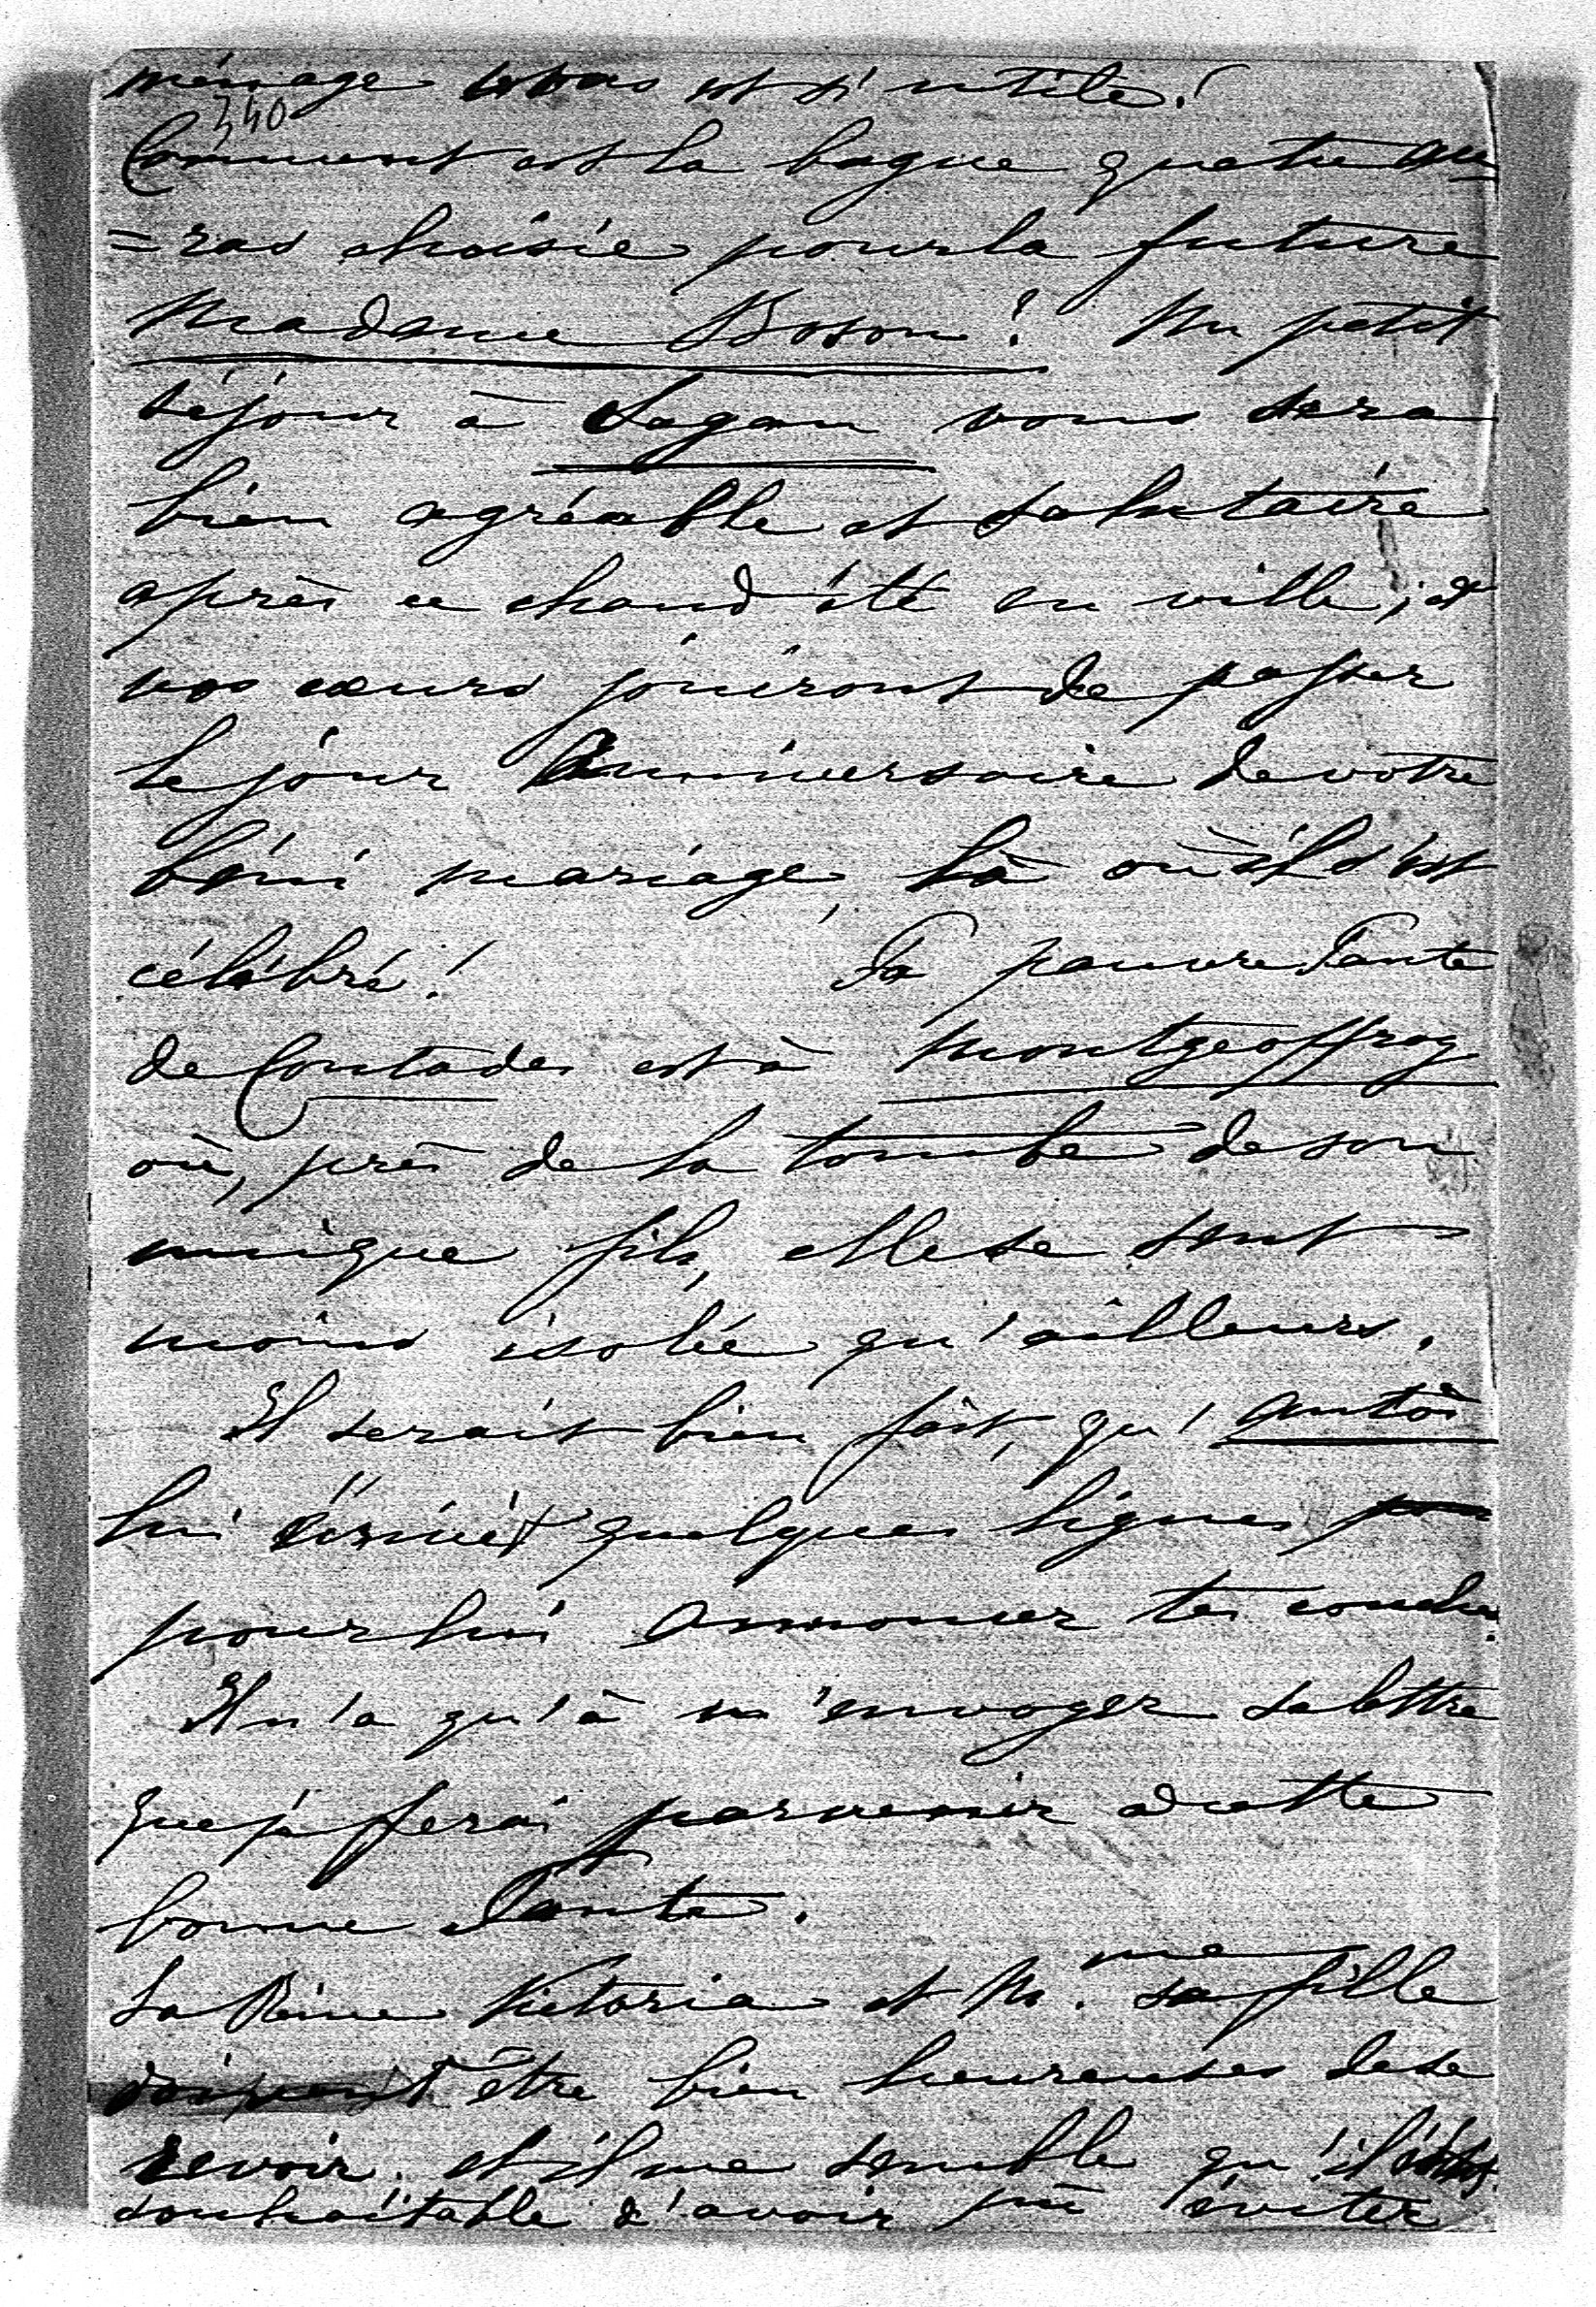 ménage est si utile!
340
Comment est la bague que tu au
=ras choisie pour la future
Madame Boson? Un petit
séjour à Sagan vous sera
bien agréable et salutaire
après ce chaud été en ville; et
vos cœurs jouiront de passer
le jour anniversaire de votre
béni mariage, là où il s'est
célébré! Ta pauvre Tante
de Contades est à Montgeoffroy
où, près de la tombe de son
unique fils, elle se sent
moins isolée qu'ailleurs.
Il serait bien fait, qu'Antoi
lui écrivit quelques lignes
pour lui annoncer tes couches.
Il n'a qu'à m'envoyer sa lettre
que je ferai parvenir à cette
bonne Tante.
La Reine Victoria et Mme sa fille
doivent être bien heureuses de se
revoir. et il me semble qu'il
souhaitable d'avoir pû éviter